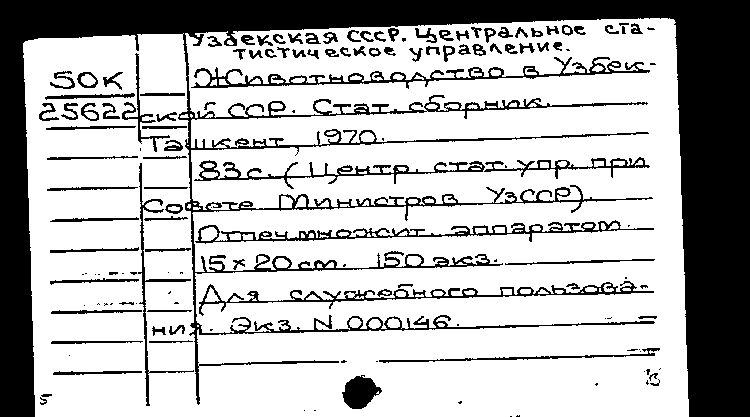 Узбекская ССР. Центральное ста-
тистическое управление.
50К
25622
Животноводство в Узбек-
ской ССР. Стат. сборник.
Ташкент, 1970.
83 с. (Центр. стат. упр. при
Совете Министров УзССР).
Отпеч. множит. аппаратом.
15 × 20 см. 150 экз.
Для служебного пользова-
ния. Экз. N 000146.
5